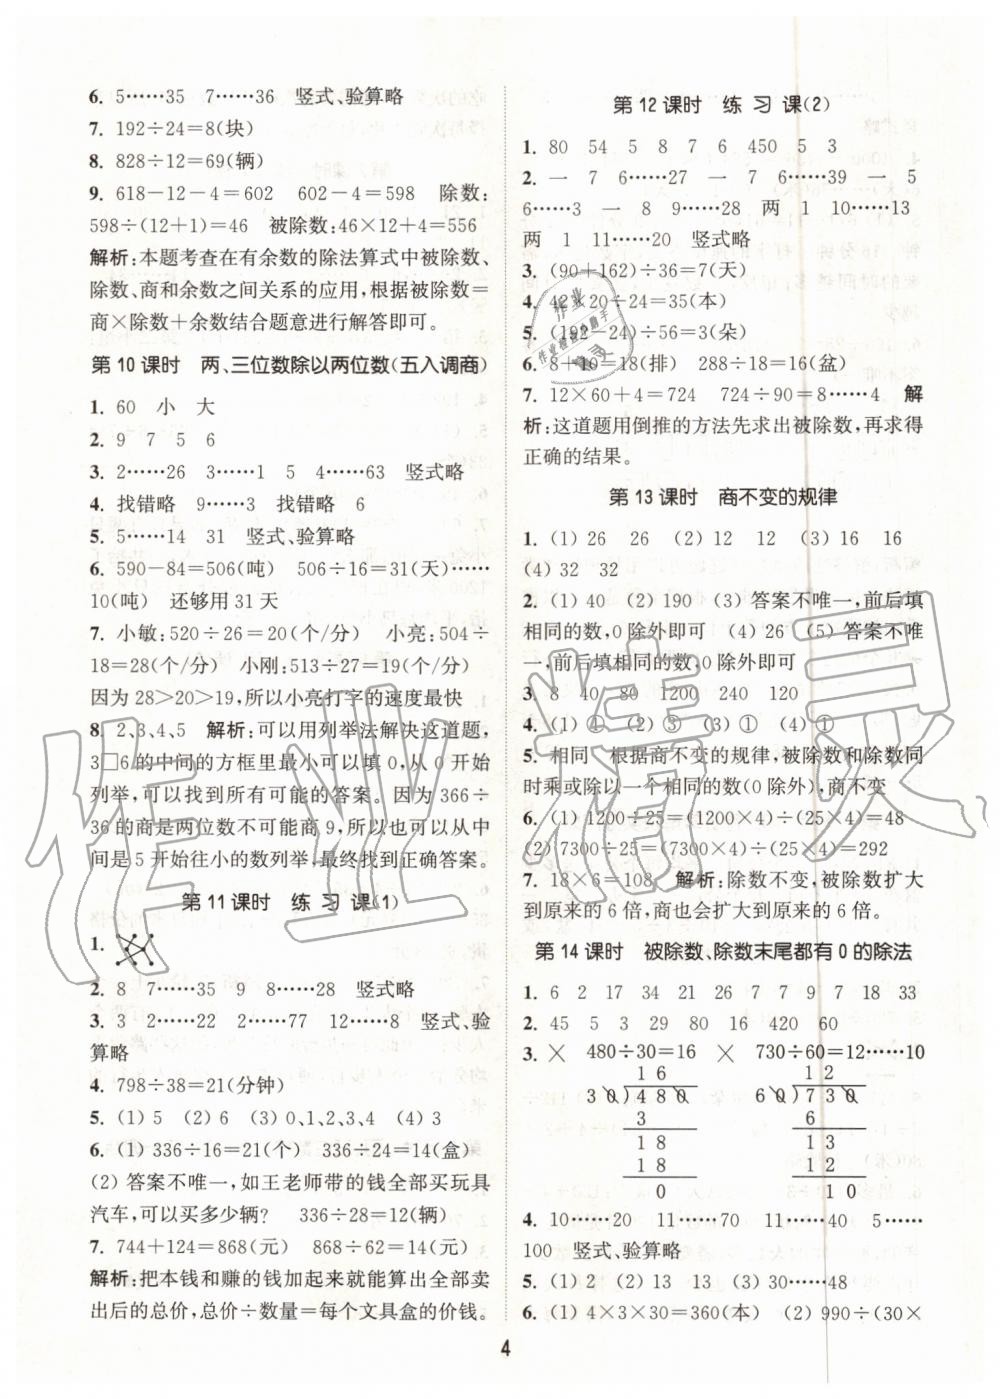 6. 5……35 7……36 竖式、验算略
7. 192÷24=8(块)
8. 828÷12=69(辆)
9. 618-12-4=602 602-4=598 除数:
598÷(12+1)=46 被除数:46×12+4=556
解析:本题考查在有余数的除法算式中被除数、
除数、商和余数之间关系的应用,根据被除数=
商×除数+余数结合题意进行解答即可。
第 10 课时 两、三位数除以两位数(五入调商)
1. 60 小 大
2. 9 7 5 6
3. 2……26 3……1 5 4……63 竖式略
4. 找错略 9……3 找错略 6
5. 5……14 31 竖式、验算略
6. 590-84=506(吨) 506÷16=31(天)……
10(吨) 还够用 31 天
7. 小敏:520÷26=20(个/分) 小亮:504÷
18=28(个/分) 小刚:513÷27=19(个/分)
因为 28>20>19,所以小亮打字的速度最快
8. 2、3、4、5 解析:可以用列举法解决这道题,
3□6的中间的方框里最小可以填 0,从 0 开始
列举,可以找到所有可能的答案。因为 366÷
36的商是两位数不可能商 9,所以也可以从中
间是 5 开始往小的数列举,最终找到正确答案。
第 11 课时 练 习 课(1)
1.
2. 8 7……35 9 8……28 竖式略
3. 3 2……22 2……77 12……8 竖式、验
算略
4. 798÷38=21(分钟)
5. (1) 5 (2) 6 (3) 0、1、2、3、4 (4) 3
6. (1) 336÷16=21(个) 336÷24=14(盒)
(2) 答案不唯一,如王老师带的钱全部买玩具
汽车,可以买多少辆? 336÷28=12(辆)
7. 744+124=868(元) 868÷62=14(元)
解析:把本钱和赚的钱加起来就能算出全部卖
出后的总价,总价÷数量=每个文具盒的价钱。
第 12 课时 练 习 课(2)
1. 80 54 5 8 7 6 450 5 3
2. 一 7 6……27 一 7 6……39 一 5
6……3 一 8 9……28 两 1 10……13
两 1 11……20 竖式略
3. (90+162)÷36=7(天)
4. 42×20÷24=35(本)
5. (192-24)÷56=3(朵)
6. 8+10=18(排) 288÷18=16(盆)
7. 12×60+4=724 724÷90=8……4 解
析:这道题用倒推的方法先求出被除数,再求得
正确的结果。
第 13 课时 商不变的规律
1. (1) 26 26 (2) 12 12 (3) 16 16
(4) 32 32
2. (1) 40 (2) 190 (3) 答案不唯一,前后填
相同的数,0 除外即可 (4) 26 (5) 答案不唯
一,前后填相同的数,0 除外即可
3. 8 40 80 1200 240 120
4. (1) ① (2) ③ (3) ① (4) ①
5. 相同 根据商不变的规律,被除数和除数同
时乘或除以一个相同的数(0 除外),商不变
6. (1) 1200÷25=(1200×4)÷(25×4)=48
(2) 7300÷25=(7300×4)÷(25×4)=292
7. 18×6=108 解析:除数不变,被除数扩大
到原来的 6 倍,商也会扩大到原来的 6 倍。
第 14 课时 被除数、除数末尾都有 0 的除法
1. 6 2 17 34 21 26 7 7 9 7 18 33
2. 45 5 3 29 80 16 420 60
3. × 480÷30=16 × 730÷60=12……10
16 12
30)480 60)730
3 6
18 13
18 12
0 10
4. 10……20 11……70 11……40 5……
100 竖式、验算略
5. (1) 2 (2) 13 13 (3) 30……48
6. (1) 4×3×30=360(本) (2) 990÷(30×
4
作业精灵